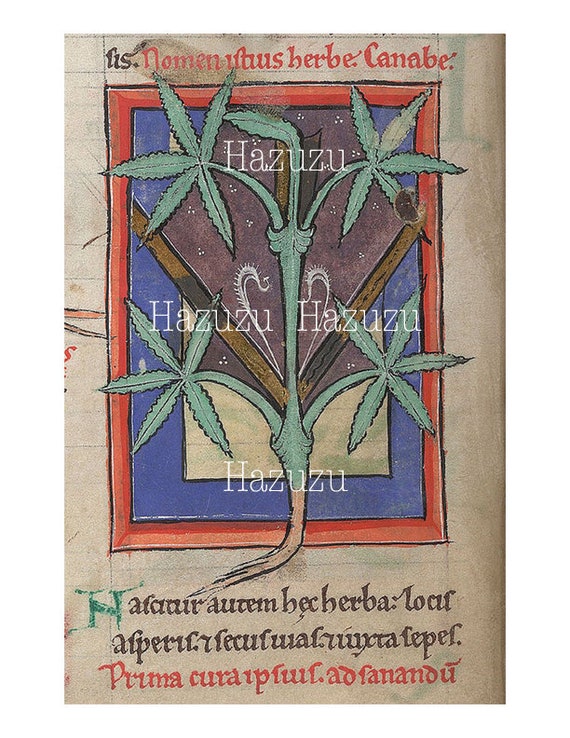 sis. Nomen istius herbe. Canabe.
Hazuzu
Hazuzu Hazuzu
Hazuzu
Nascitur autem hęc herba: locis
asperis. ⁊ secus uias. ⁊ iuxta sepes.
Prima cura ipsius. ad sanandū